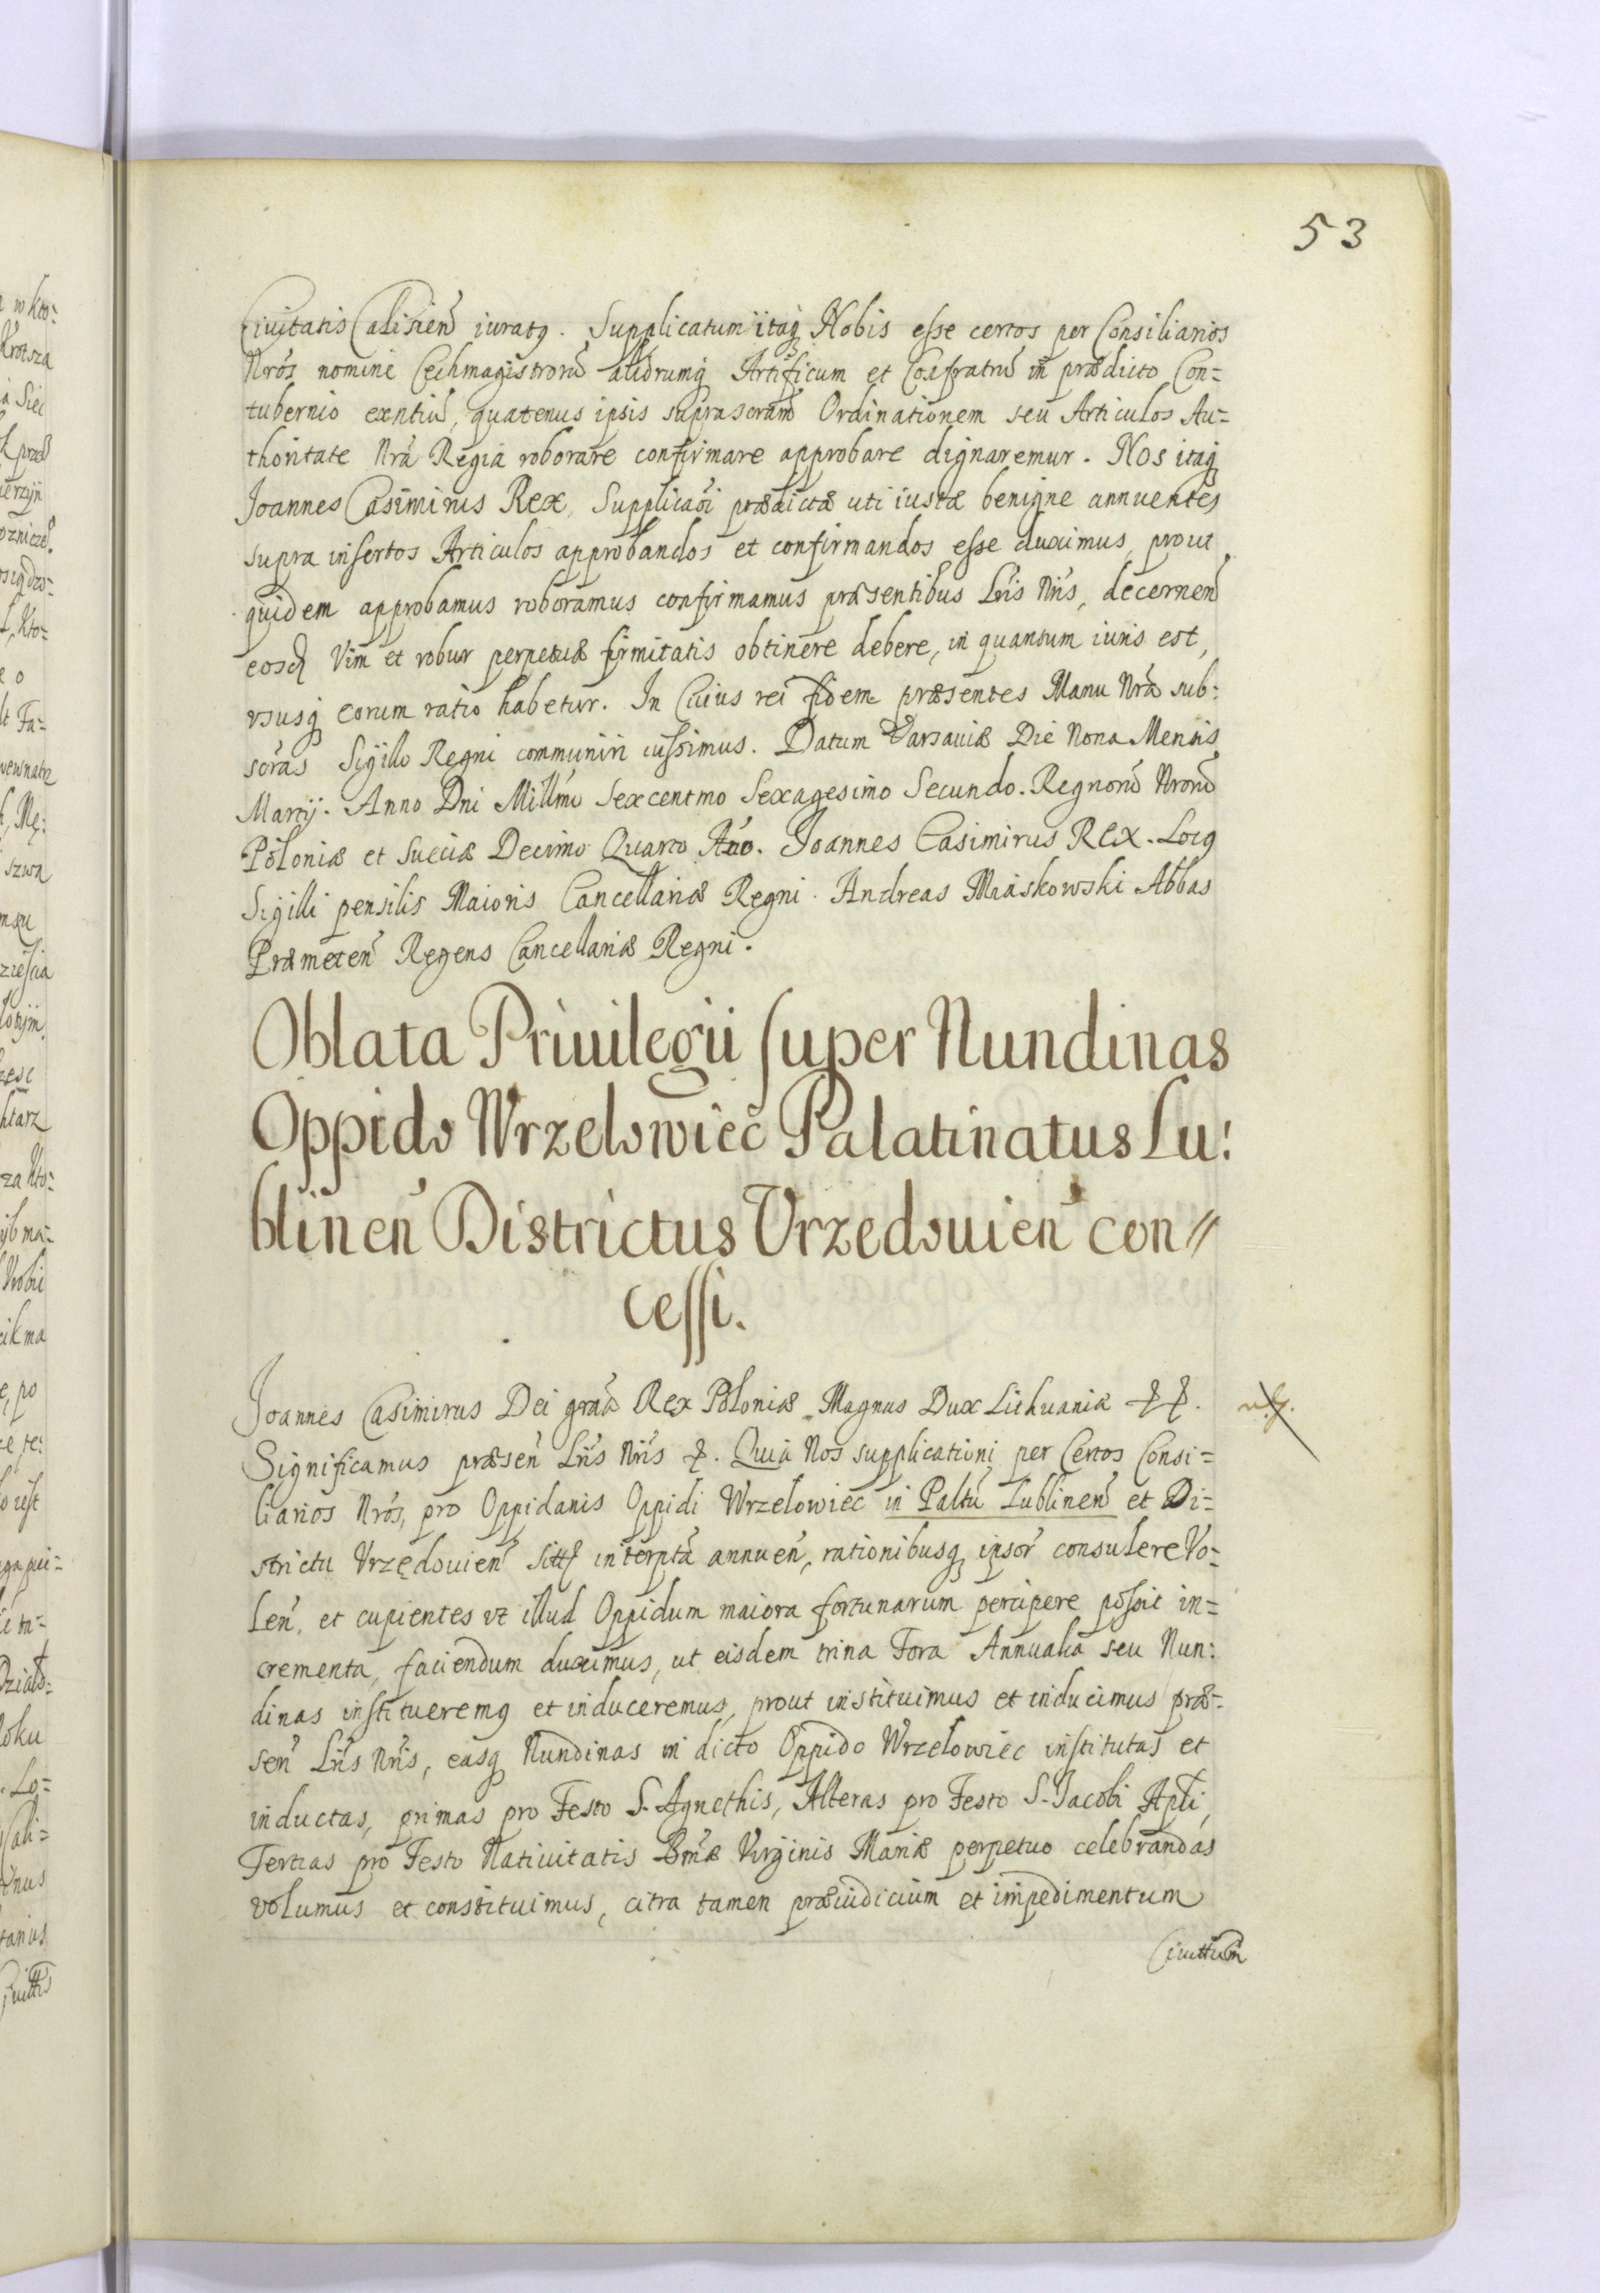 53
Ciuitatis Calisień iuratq. Supplicatum itaq Nobis esse certos per Consiliarios
Nrós nomine Cechmagistrorũ aliorumq Artificum et Confratrũ in prædicto Con=
tubernio exntiũ, quatenus ipsis suprascrãm Ordinationem seu Articulos Au=
thoritate Nrã Regia roborare confirmare approbare dignaremur. Nos itaq
Joannes Casimirus Rex, Supplicãoi prædictæ uti iustæ benigne annuentes
supra insertos Articulos approbandos et confirmandos esse duximus, prout
quidem approbamus roboramus confirmamus præsentibus Lris Nris, decerneñ
eosd Vim et robur perpetuæ firmitatis obtinere debere, in quantum iuris est,
vsusq eorum ratio habetur. In Cuius rei fidem præsentes Manu Nrã sub:
scrãs Sigillo Regni communiri iussimus. Datum Varsauiæ Die Nona Mensis
Martij. Anno Dni Millmo Sexcentmo Sexagesimo Secundo. Regnorũ Nrorũ
Poloniæ et Sueciæ Decimo Quarto Ańo. Joannes Casimirus Rex. Locq
Sigilli pensilis Maioris Cancellariæ Regni. Andreas Miaskowski Abbas
Præmeteń Regens Cancellariæ Regni.
Oblata Priuilegii super Nundinas
Oppido Wrzelowiec Palatinatus Lu:
blineń Districtus Vrzedouień con//
cessi.
Joannes Casimirus Dei grãa Rex Poloniæ Magnus Dux Lithuaniæ & &.
Significamus præseń Lris Nris &. Quia Nos supplicationi per Certos Consi=
liarios Nrós, pro Oppidanis Oppidi Wrzelowiec in Paltũ Lublineń et Di=
strictu Vrzędouień interptã annueń, rationibusq ipsor consulere Vo=
leń, et cupientes vt illud Oppidum maiora fortunarum percipere possit in=
crementa, faciendum duximus, ut eisdem trina Fora Annualia seu Nun:
dinas institueremq et induceremus, prout instituimus et inducimus præ=
seń Lris Nris, easq Nundinas in dicto Oppido Wrzelowiec institutas et
inductas, primas pro Festo S. Agnethis, Alteras pro Festo S. Jacobi Apli,
Tertias pro Festo Natiuitatis Bmæ Virginis Mariæ perpetuo celebrandas
volumus et constituimus, citra tamen præiudicium et impedimentum
Ciuittum